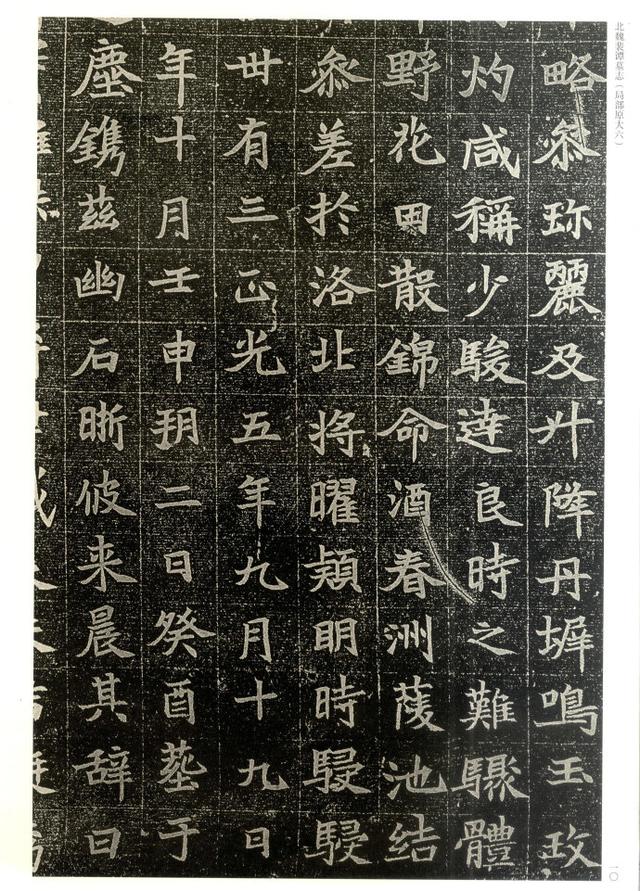 北魏裴谭墓志（局部原大六）
略叅珎麗及升降丹墀鳴玉政
灼咸稱少駿逹良時之難驟體
野花田散錦命酒春洲蔆池結
叅差扵洛北将曜穎明時駸駸
丗有三正光五年九月十九日
年十月壬申朔二日癸酉葬于
塵鐫兹幽石晣彼来晨其辞曰
一〇